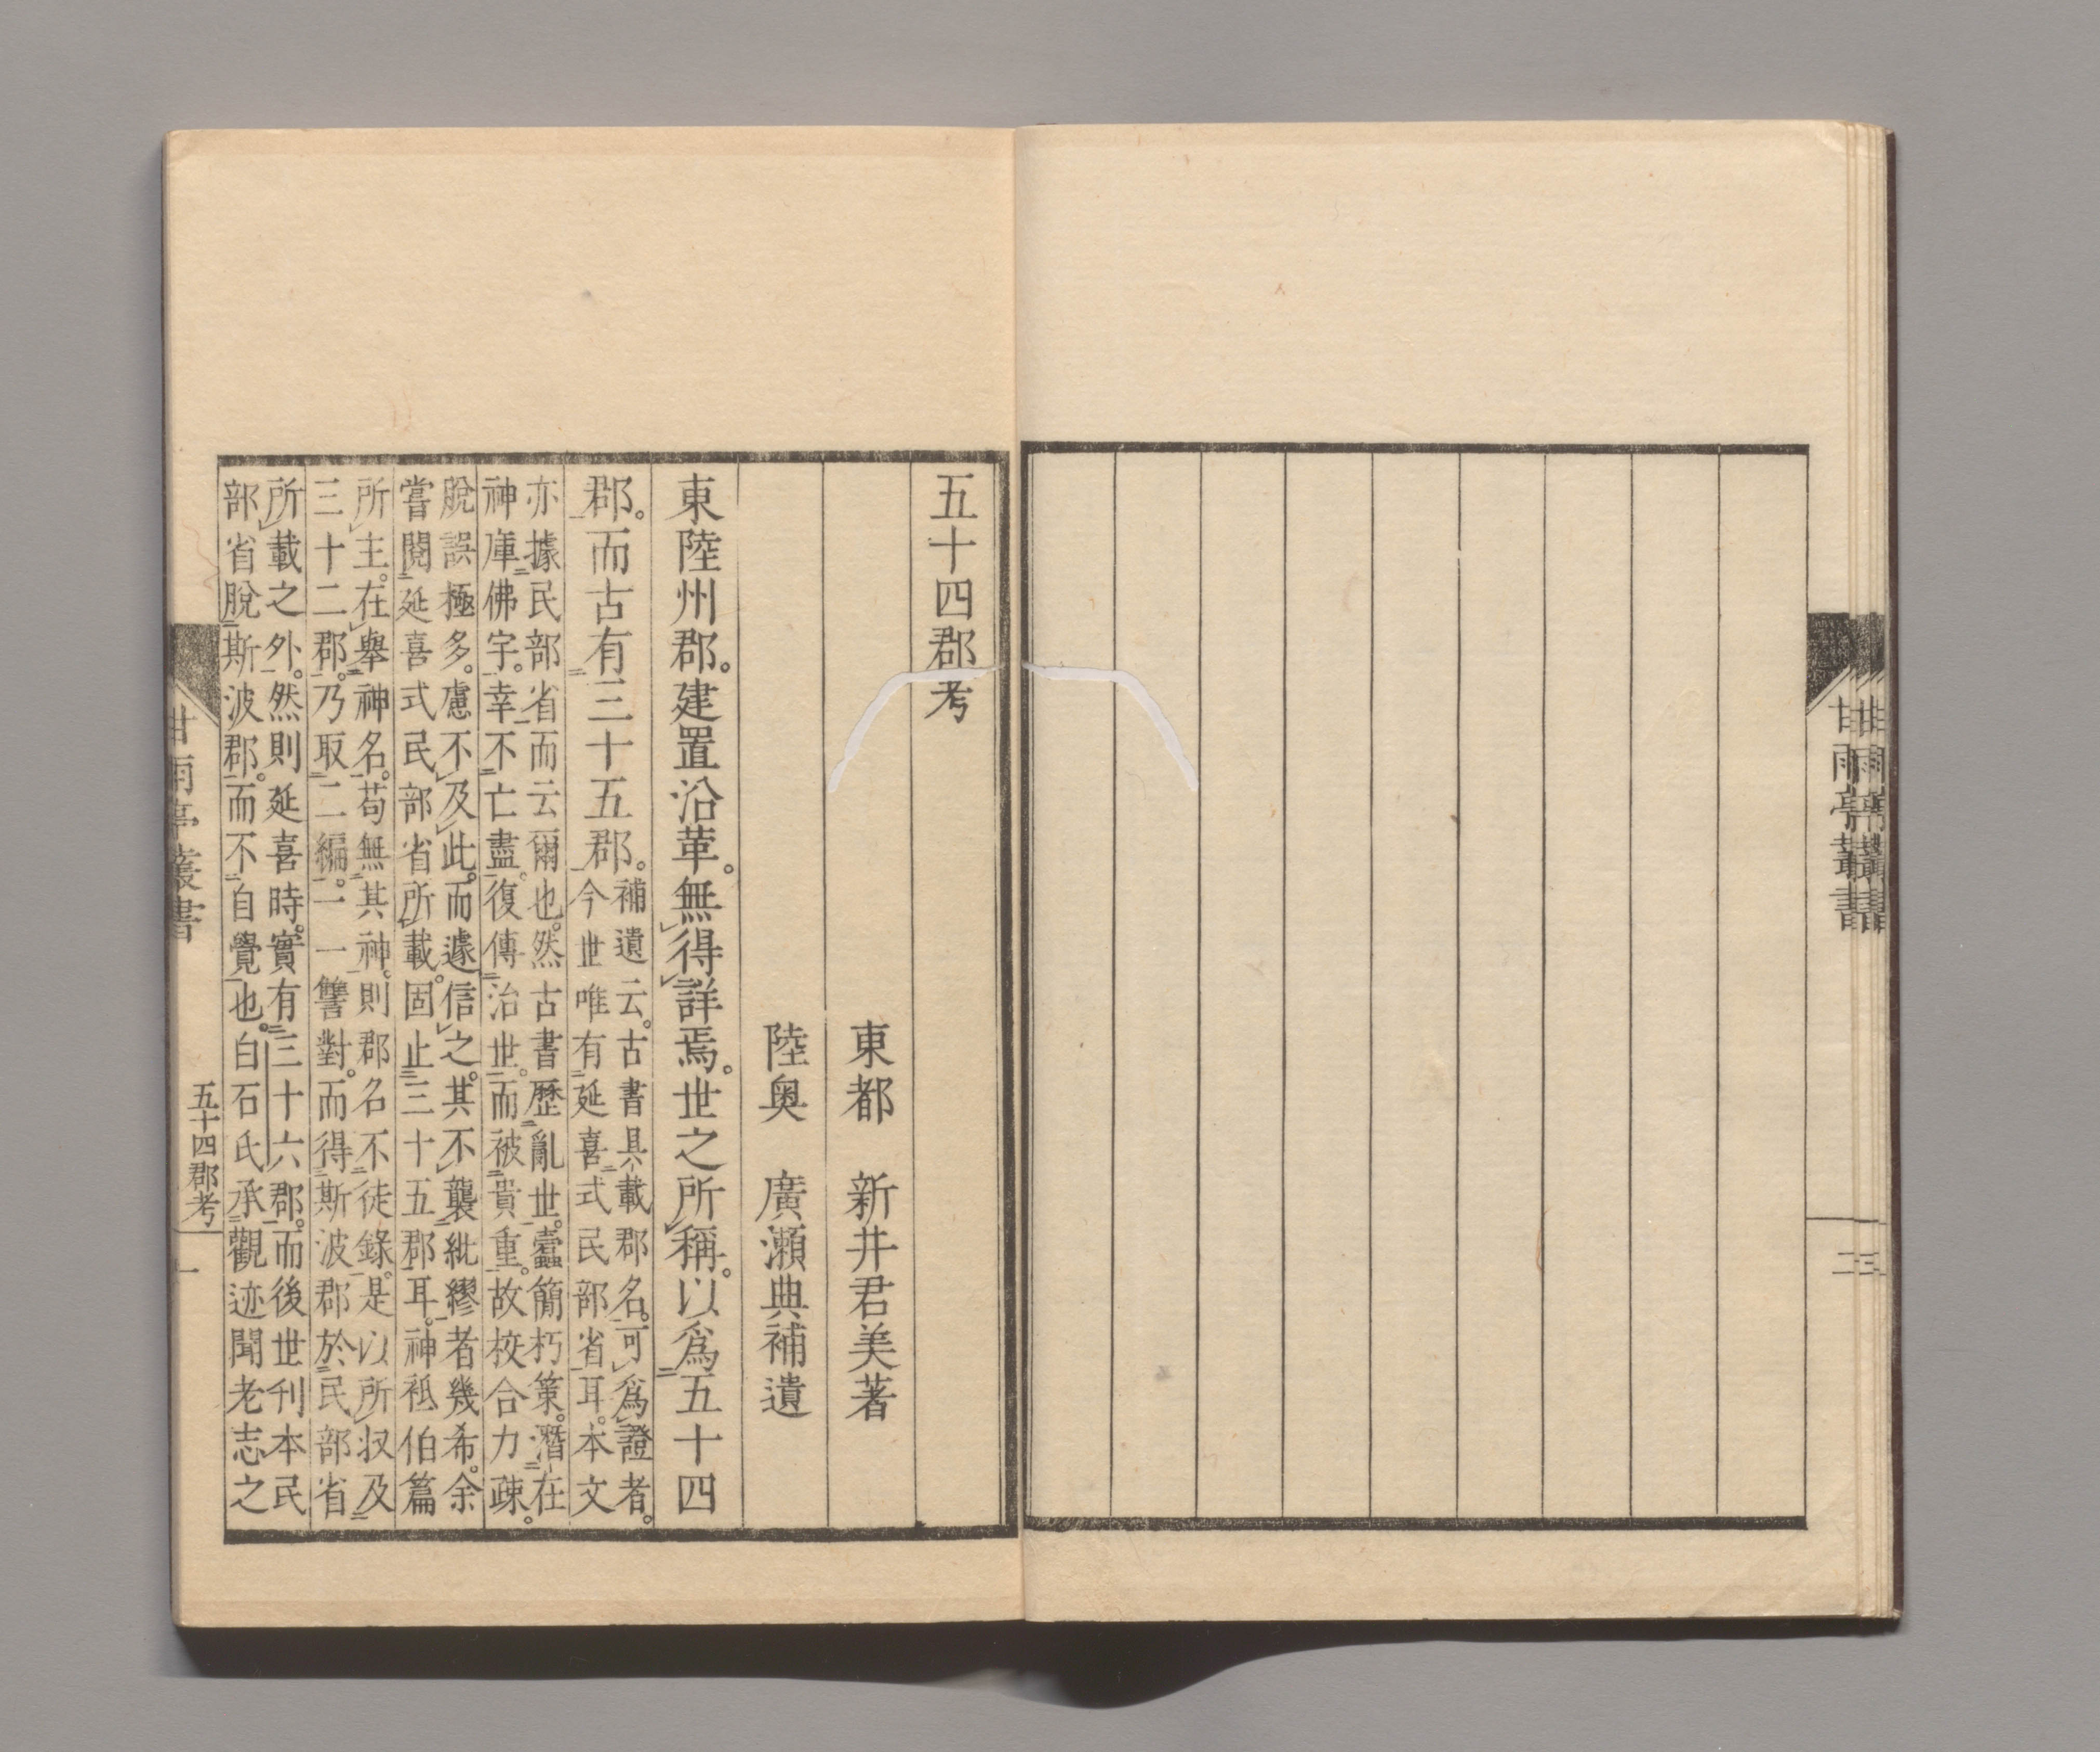 甘雨亭叢書
二
三
五十四郡考
東都　新井君美著
陸奥　廣瀬典補遺
東陸州郡。建置沿革。無得詳焉。世之所稱。以爲五十四
郡。而古有三十五郡。
補遺云。古書具載郡名。可爲證者。
今世唯有延喜式民部省耳。本文
亦據民部省而云爾也。然古書歷亂世。蠹簡朽策。潛在
神庫佛宇。幸不亡盡。復傳治世。而被貴重。故校合力疎。
脫誤極多。慮不及此。而遽信之。其不襲紕繆者幾希。余
嘗閱延喜式民部省所載。固止三十五郡耳。神祗伯篇
所主。在舉神名。苟無其神。則郡名不徒錄。是以所収及
三十二郡。乃取二編。一一讐對。而得斯波郡於民部省
所載之外。然則延喜時。實有三十六郡。而後世刊本民
部省脫斯波郡。而不自覺也。白石氏承觀迹聞老志之
甘雨亭叢書
五十四郡考
一